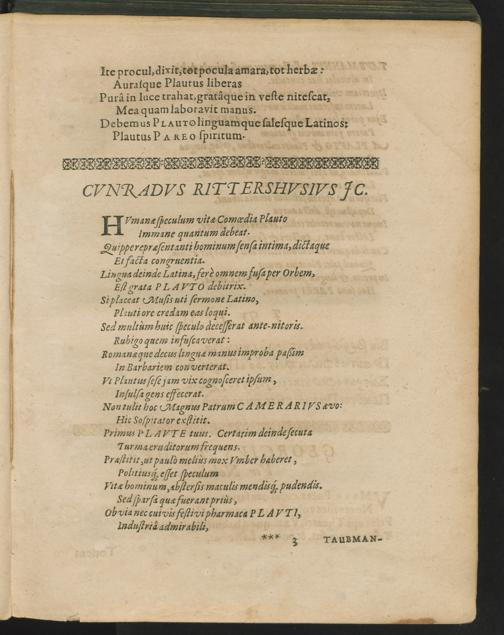 Ite procul, dixit, tot pocula amara, tot herbæ:
Aurasque Plautus liberas
Purâ in luce trahat, gratâque in veste nitescat,
Mea quam laboravit manus.
Debemus PLAUTO linguamque salesque Latinos:
Plautus PAREO spiritum.
CVNRADVS RITTERSHVSIVS JC.
HVmanæ speculum vitæ Comœdia Plauto
Immane quantum debeat.
Quippe repræsentanti hominum sensa intima, dictaque
Et facta congruentia.
Lingua deinde Latina, ferè omnem fusa per Orbem,
Est grata PLAVTO debitrix.
Si placeat Musis uti sermone Latino,
Plauti ore credam eas loqui.
Sed multùm huic speculo decesserat ante-nitoris.
Rubigo quem infuscaverat:
Romanæque decus linguæ manus improba passim
In Barbariem converterat.
Vt Plautus sese jam vix cognosceret ipsum,
Insulsa gens effecerat.
Non tulit hoc Magnus Patrum CAMERARIVS avo:
Hic Sospitator exstitit.
Primus PLAVTE tuus. Certatim deinde secuta
Turma eruditorum frequens.
Præstitit, ut paulò meliùs mox Vmber haberet,
Politiusq́; esset speculum
Vitæ hominum, abstersis maculis mendisq́; pudendis.
Sed sparsa quæ fuerant priùs,
Obvia nec cuivis festivi pharmaca PLAVTI,
Industriâ admirabili,
*** 3 TAUBMAN-